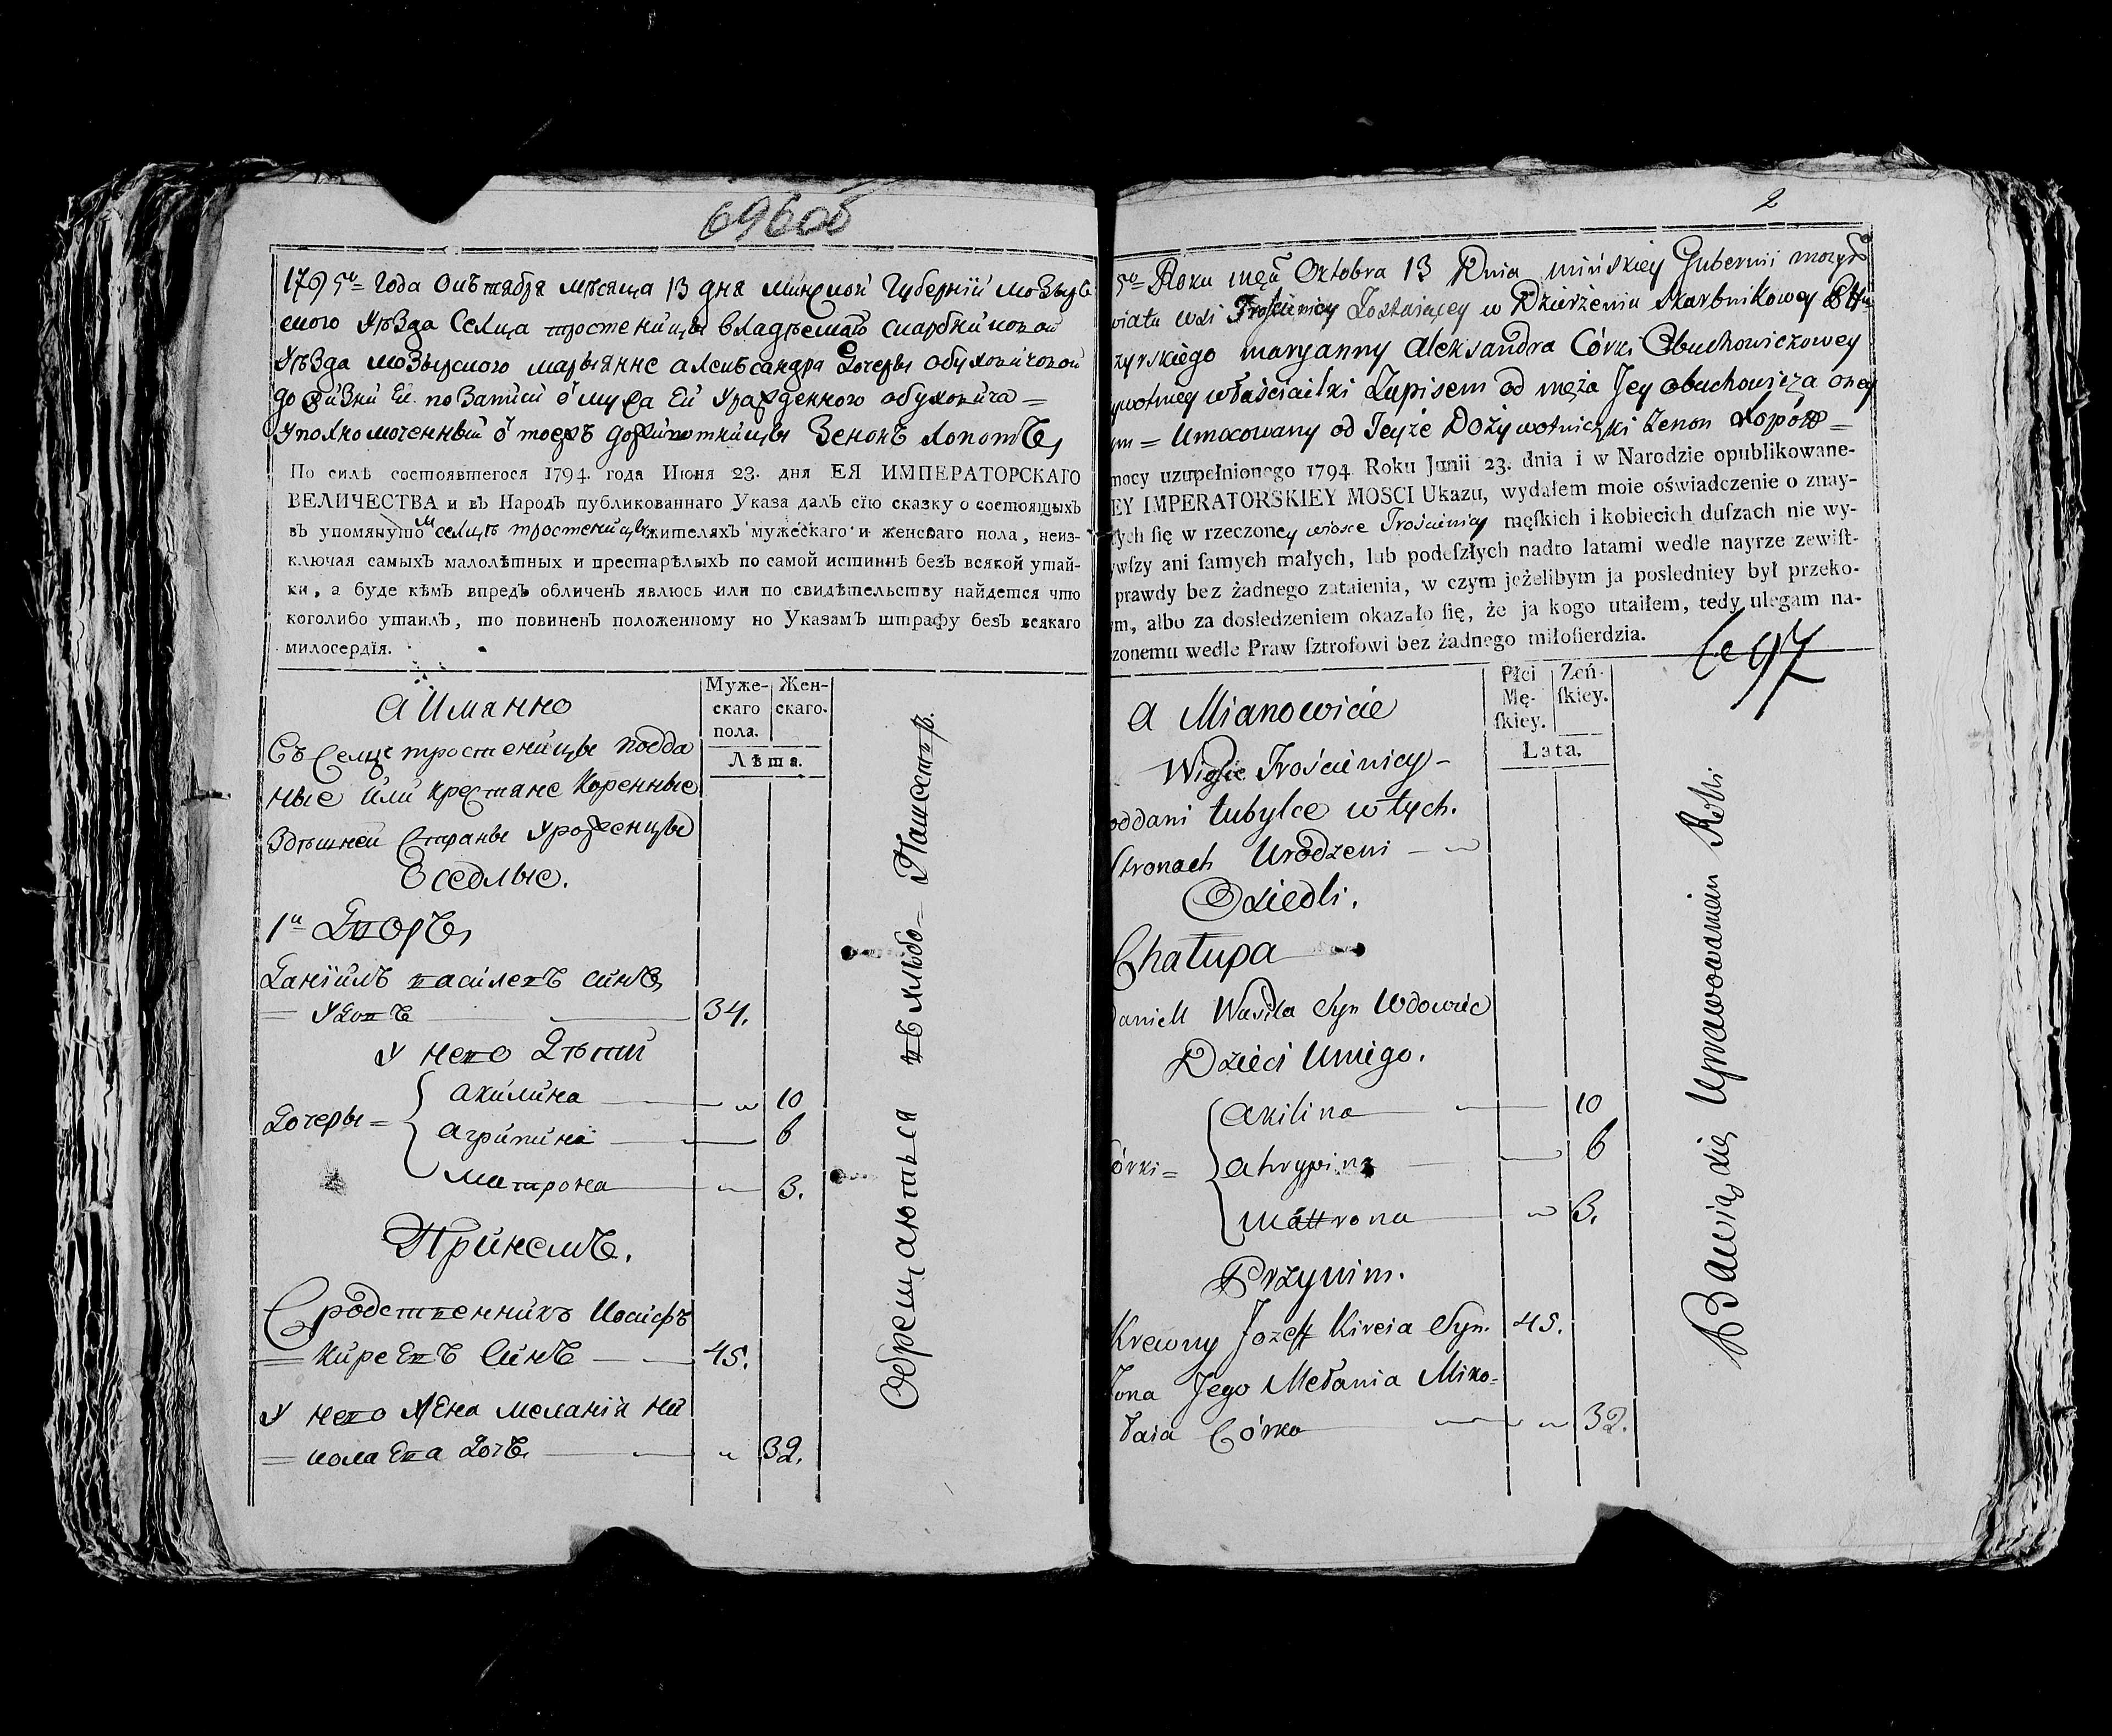 696об
1795го Года Октября мѣсяца 13 дня минской Губерніи мозырс
скаго уѣзда Селца тростеницы владѣемаго скарбниковой
уѣзда мозырского марьянне александра Дочеры обуховичовой
до жизни Ей по записи о мужа Ей урожденного обуховича =
уполномоченный о тоежъ доживотницы Зенонъ лопотъ
По силѣ состоявшегося 1794. года Июня 23. дня ЕЯ ИМПЕРАТОРСКАГО
ВЕЛИЧЕСТВА и въ Народѣ публикованнаго Указа далъ сїю сказку о состоящыхъ
въ упомянутомъ селцѣ тростеницы жителяхъ мужескаго и женскаго пола, неиз-
ключая самыхъ малолѣтных и престарѣлыхъ по самой истиннѣ безъ всякой утай-
ки, а буде кѣмъ впредь обличенъ явлюсь или по свидѣтельству найдется что
коголибо утаилъ, то повиненъ положенному по Указамъ штрафу безъ всякаго
милосердїя.
а Имянно
Муже-
скаго
пола.
Жен-
скаго.
Лѣта.
Въ Селце тростеницы подда
ные или крестяне коренные
Здѣшней Стараны уроженцы
Оседлые.
1й Дворъ
Даніилъ василевъ синъ
= удовъ 34.
у него Дѣти
Дочеры =
акилина 10
агрипина 6
матрона 3.
Прiнемъ.
Сродственникъ Иосифъ
= киревъ Синъ 45.
у него жена меланія ни
= колаева Дочъ 32.
Обрещаються въ хлѣбо = Пашествѣ.
2
5go Roku mca Oktobra 13 Dnia mińskiey Gubernii mozyrs
wiatu wsi Trościenicy Zostaiącey w Dzierżeniu Skarbnikowey Pttu
zyrskiego maryanny Aleksandra Córki Obuchowiczowey
ywotniey właścicielki Zapisem od męża Jey obuchowicza oney
ym = Umocowany od Teyże Dożywotniczki Zenon Łopott =
mocy uzupełnionego 1794. Roku Junii 23. dnia i w Narodzie opublikowane-
EY IMPERATORSKIEY MOSCI Ukazu, wydałem moie oświadczenie o znay-
ych się w rzeczoney wiosce Trościenicy męſkich i kobiecich duſzach nie wy-
wſzy ani ſamych małych, lub podeſzłych nadto latami wedle nayrze zewiſt-
prawdy bez żadnego zataienia, w czym jeżelibym ja posledniey był przeko-
m, albo za dosledzeniem okazało ſię, że ja kogo utaiłem, tedy ulegam na-
zonemu wedle Praw ſztrofowi bez żadnego miłoſierdzia.
697
a Mianowicie
Płci
Mę-
ſkiey.
Zeń-
ſkiey.
Lata.
Wiosce Trościenicy -
oddani tubylce w tych.
Stronach Urodzeni
Osiedli.
Chałupa
Daniell Wasila Syn Wdowiec
Dzieci Uniego.
órki =
Akilina 10
ahrypina 6
mattrona 3.
Przynim.
Krewny Jozeff Kireia Syn. 45.
Żona Jego Mełania Miko-
łaia Córka 32.
Bawią się Uprawowaniem Roli